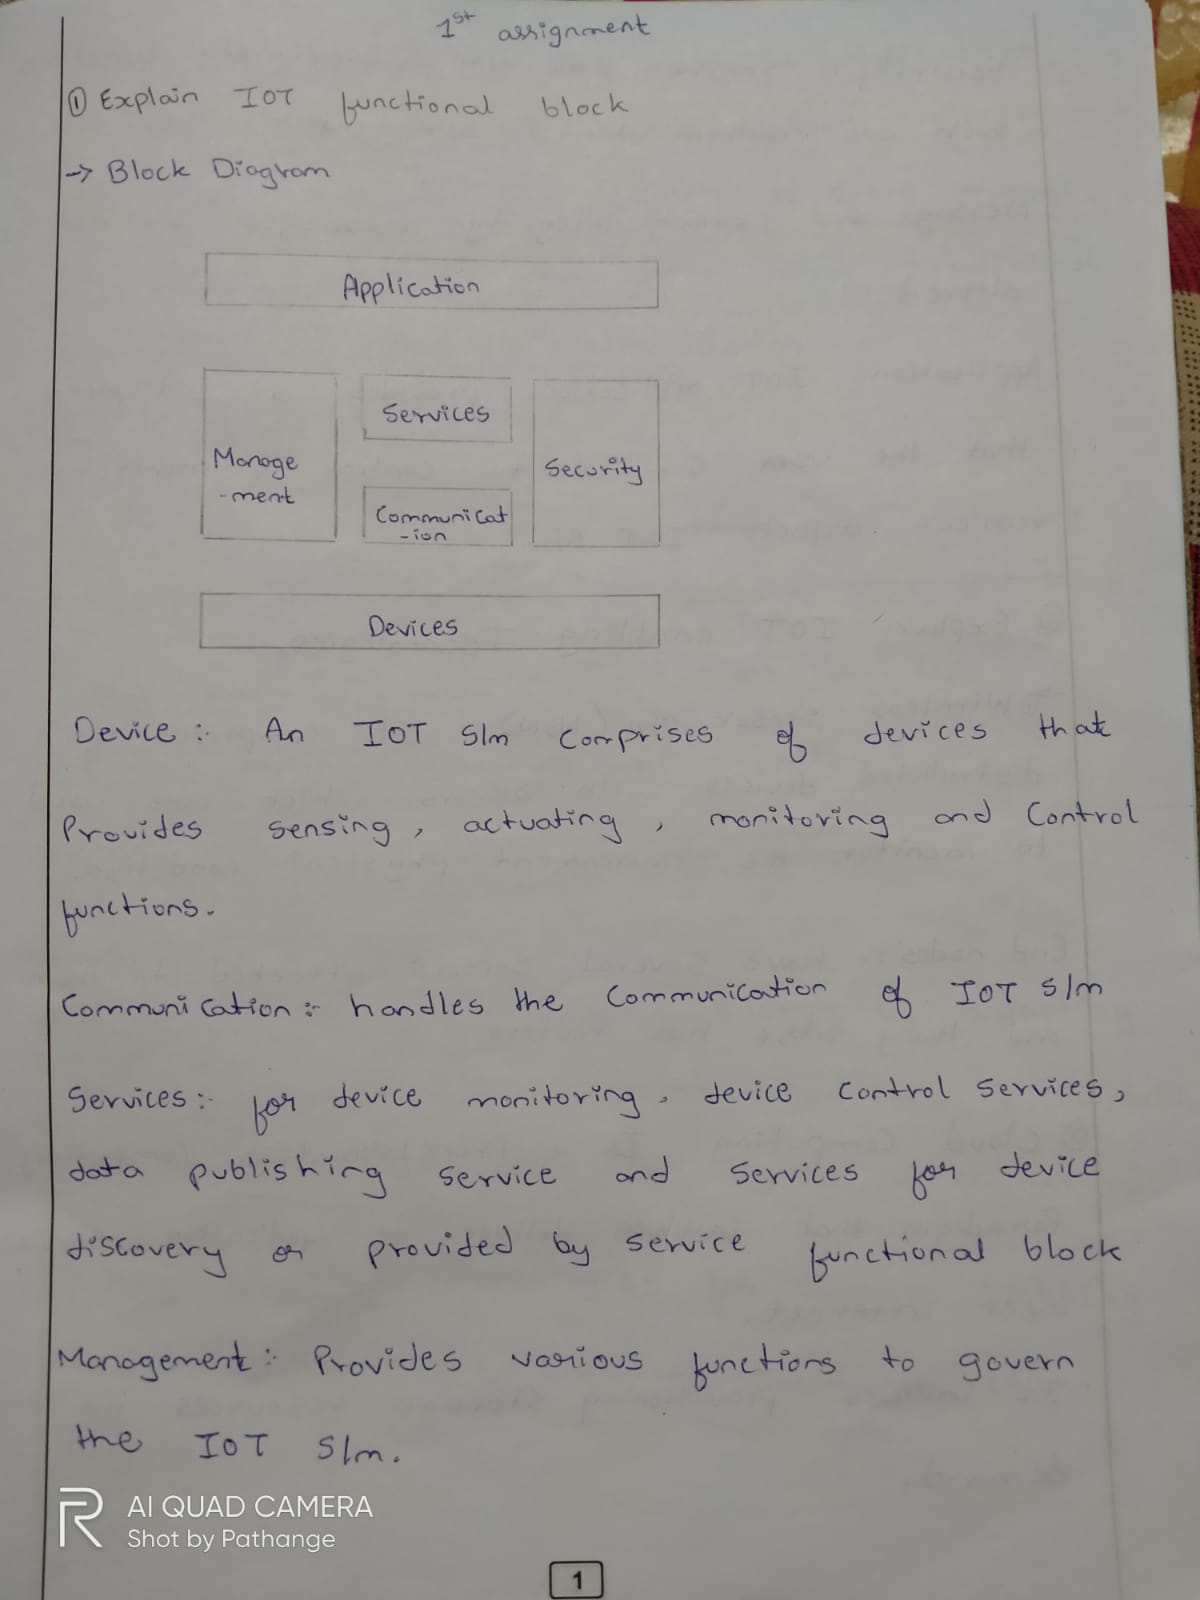 1st assignment
① Explain IOT functional block
→ Block Diagram
Application
Manage
-ment
Services
Communicat
-ion
Security
Devices
Device :- An IOT S/m comprises of devices that
Provides sensing, actuating, monitoring and Control
functions.
Communication :- handles the Communication of IOT S/m
Services :- for device monitoring, device control services,
data publishing service and services for device
discovery or provided by service functional block
Management :- Provides various functions to govern
the IOT S/m.
AI QUAD CAMERA
Shot by Pathange
1